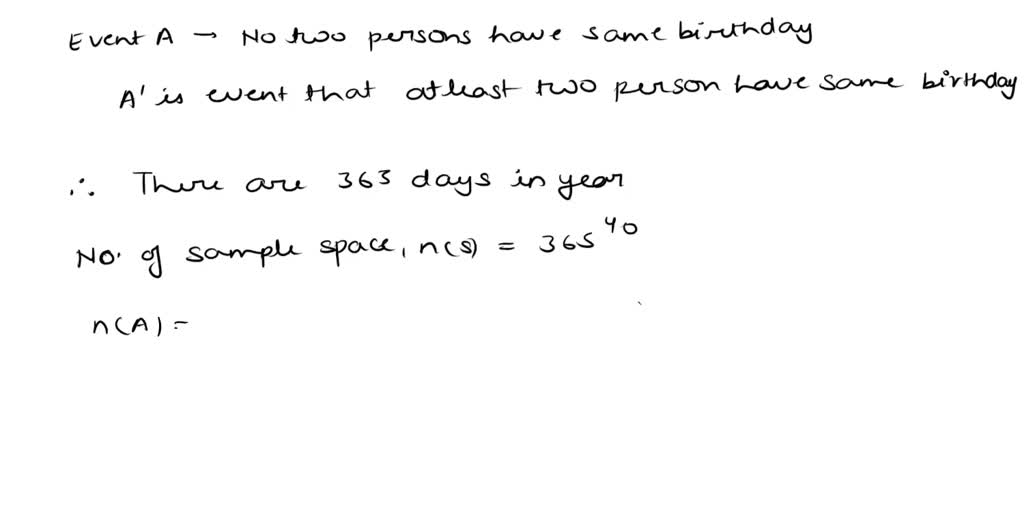 Event A → No two persons have same birthday
A' is event that atleast two person have same birthday
∴ There are 365 days in year
No. of sample space, n(s) = 365^40
n(A) =